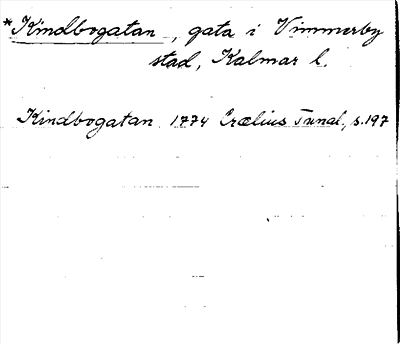 *Kindbogatan, gata i Vimmerby
stad, Kalmar l.
Kindbogatan 1774 Crælius Tunal., s. 197